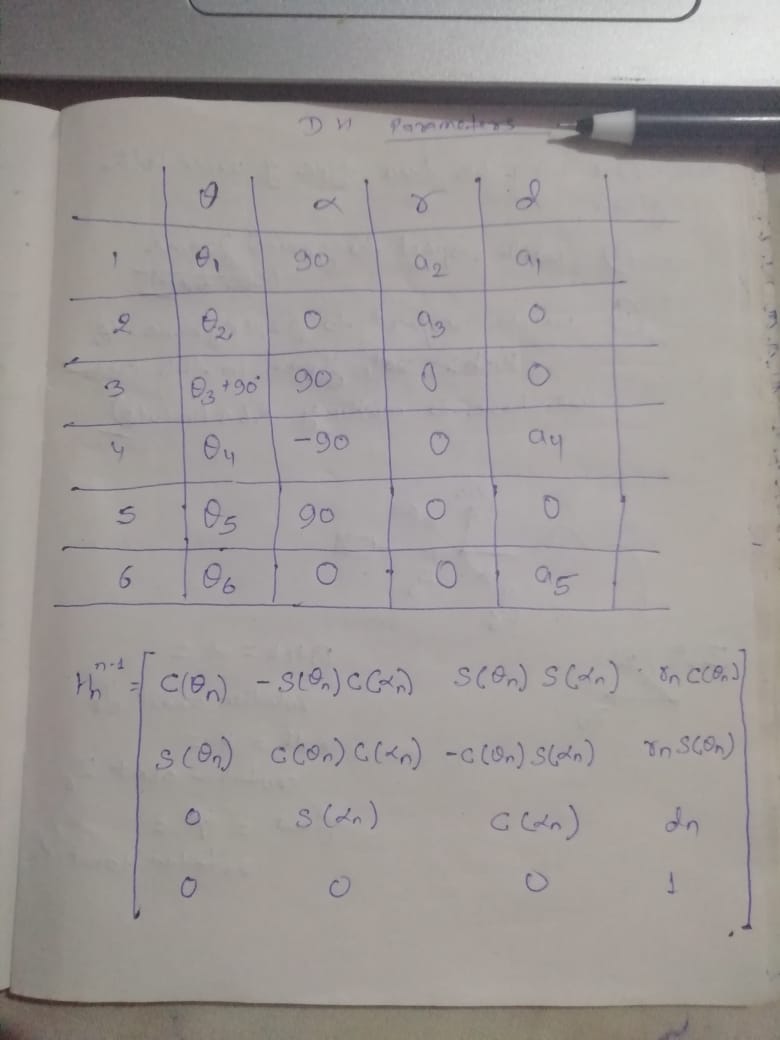 DH Parameters
θ α r d
1 θ₁ 90 a₂ a₁
2 θ₂ 0 a₃ 0
3 θ₃+90° 90 0 0
4 θ₄ -90 0 a₄
5 θ₅ 90 0 0
6 θ₆ 0 0 a₅
Hₙⁿ⁻¹ = [ C(θₙ) -S(θₙ)C(αₙ) S(θₙ)S(αₙ) rₙC(θₙ)
S(θₙ) C(θₙ)C(αₙ) -C(θₙ)S(αₙ) rₙS(θₙ)
0 S(αₙ) C(αₙ) dₙ
0 0 0 1 ]